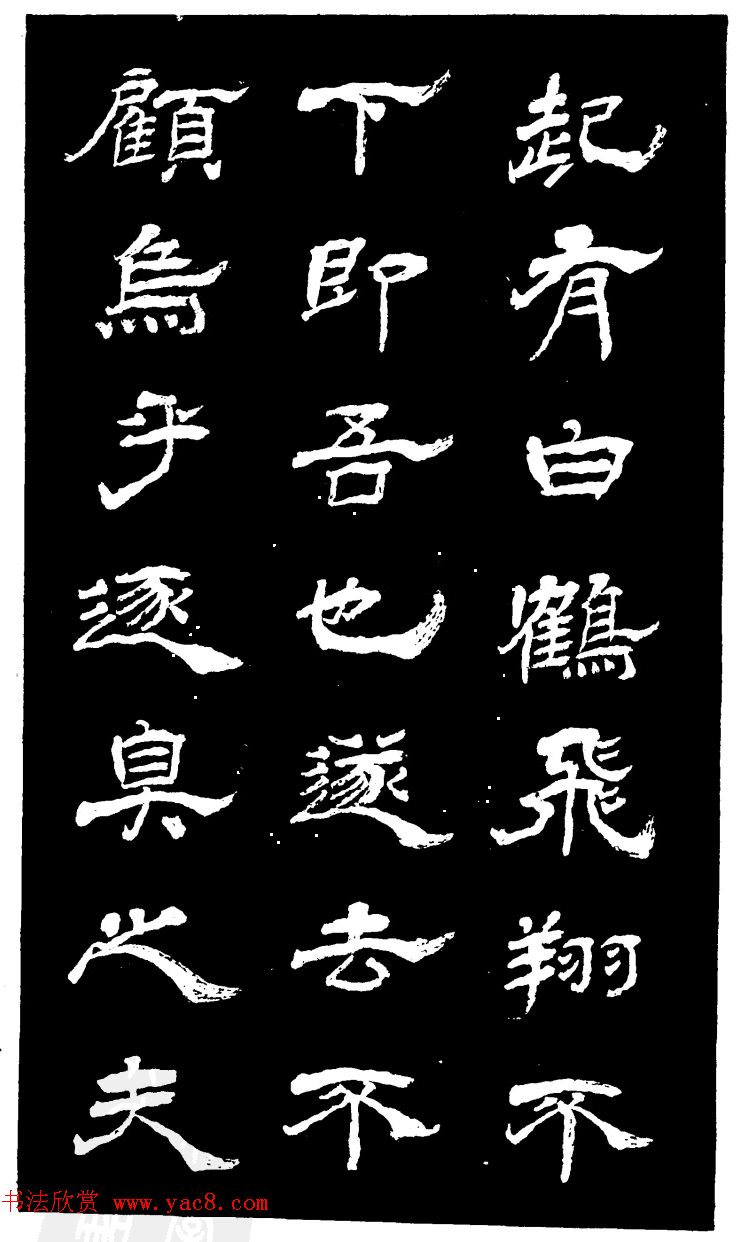 起有白鶴飛翔不
下即吾也遂去不
顧烏乎逐臭之夫
书法欣赏 www.yac8.com